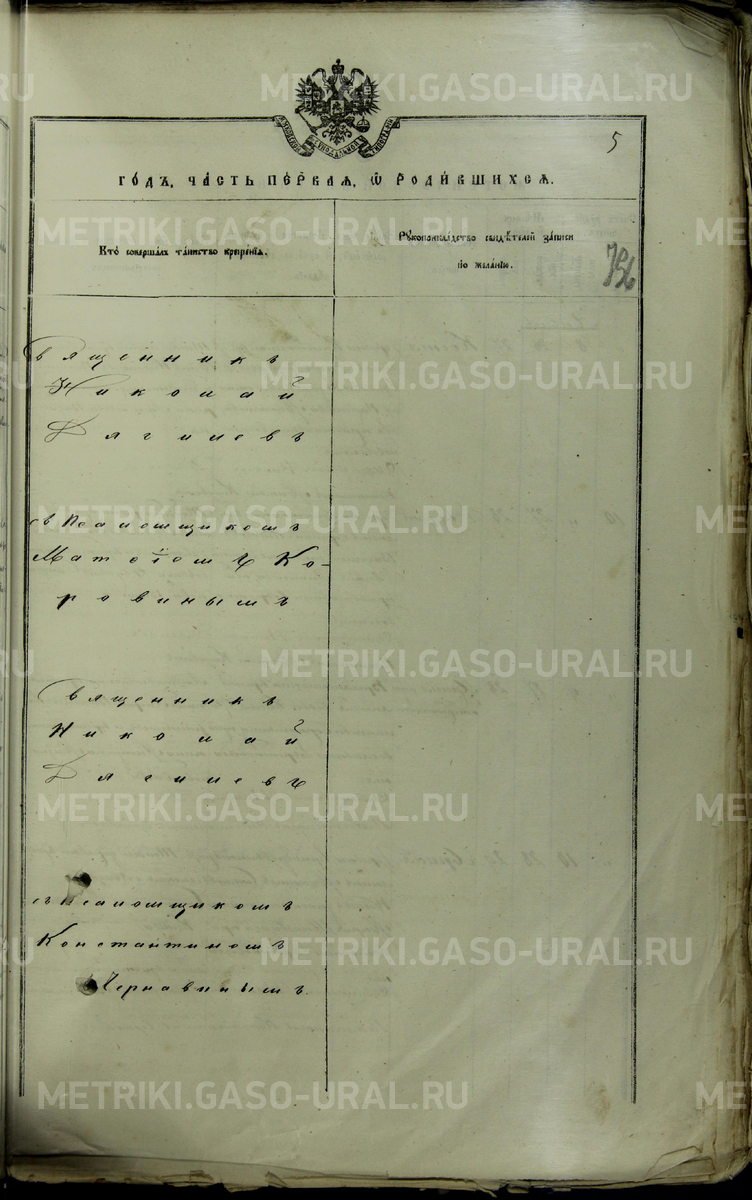 5
ГО́ДЪ, ЧА́СТЬ ПЕ́РВАѦ, Ѡ РОДИ́ВШИХСѦ.
Кто̀ соверша́лъ та́инство креще́нїѧ.
Рꙋкоприкла́дство свидѣ́телей за́писи
по жела́нїю.
756
Священникъ
Николай
Дягилевъ
съ Псаломщикомъ
Матѳіемъ Ко-
ровинымъ
Священникъ
Николай
Дягилевъ
съ Псаломщикомъ
Константиномъ
Чернавинымъ.
METRIKI.GASO-URAL.RU
METRIKI.GASO-URAL.RU
METRIKI.GASO-URAL.RU
METRIKI.GASO-URAL.RU
METRIKI.GASO-URAL.RU
METRIKI.GASO-URAL.RU
METRIKI.GASO-URAL.RU
METRIKI.GASO-URAL.RU